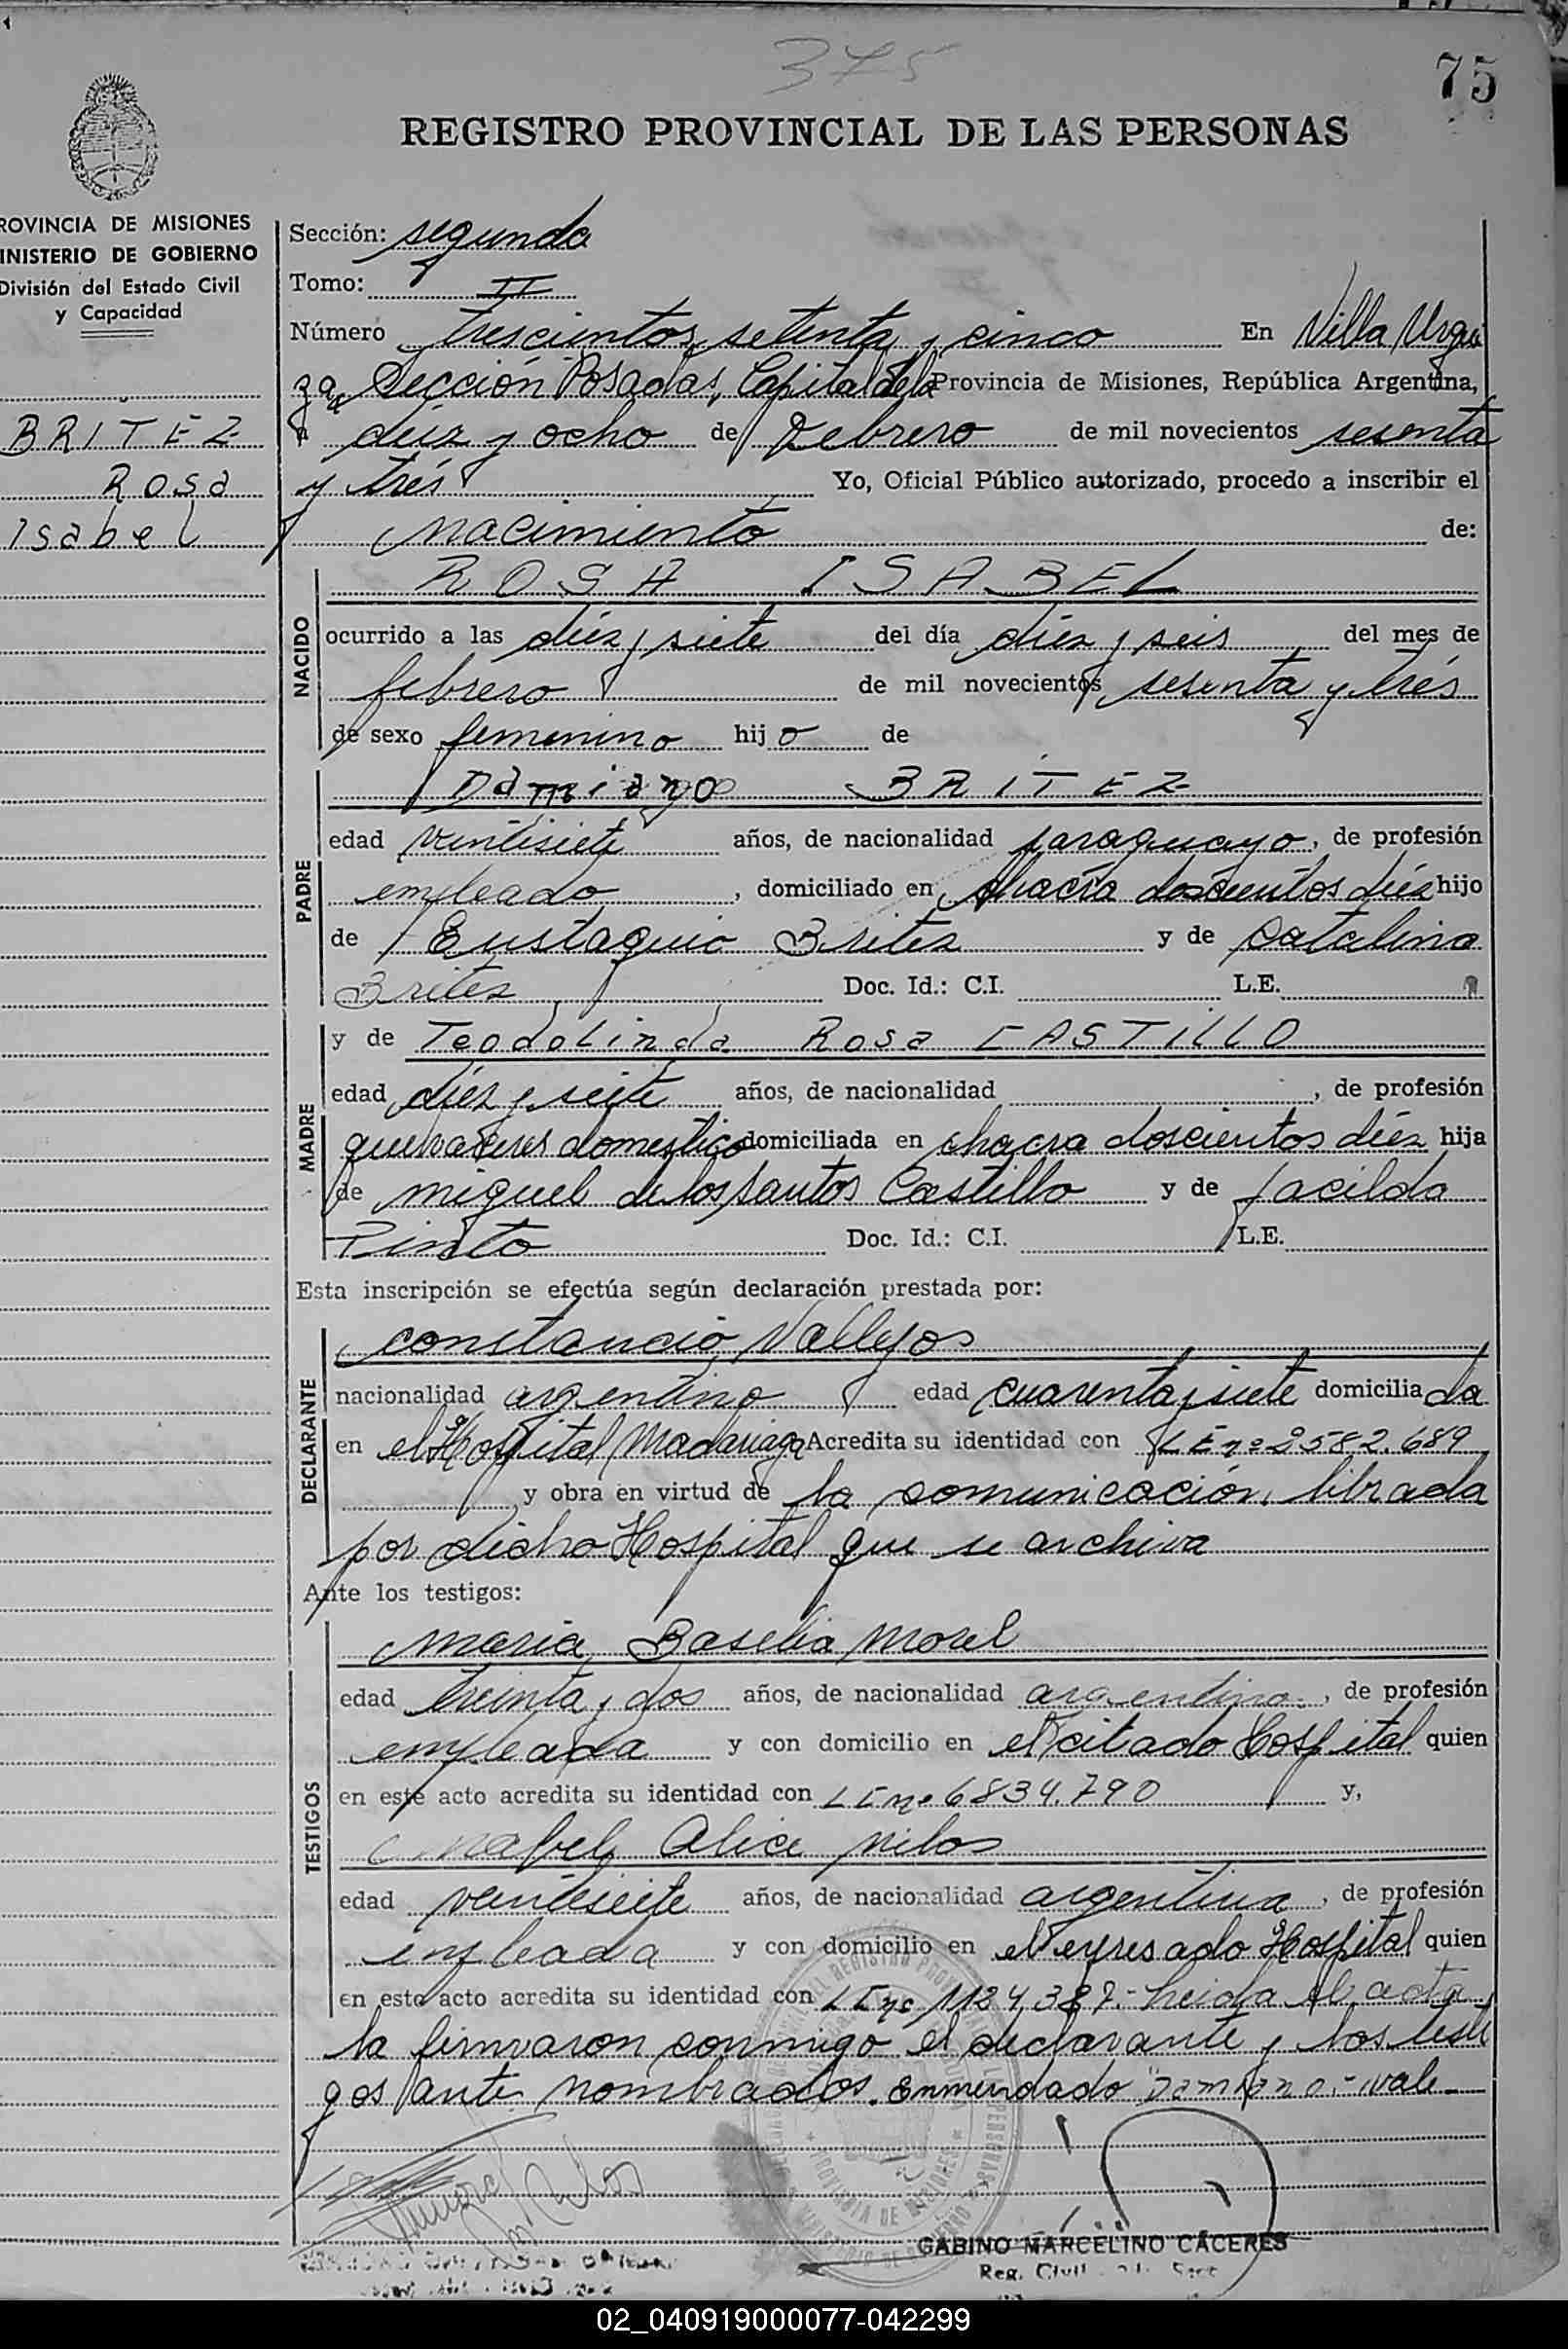 375
75
REGISTRO PROVINCIAL DE LAS PERSONAS
ROVINCIA DE MISIONES
INISTERIO DE GOBIERNO
División del Estado Civil
y Capacidad
BRITEZ
Rosa
Isabel
Sección: segunda
Tomo: II
Número trescientos setenta y cinco En Villa Urqui
za, Sección Posadas, Capital de la Provincia de Misiones, República Argentina,
a diéz y ocho de febrero de mil novecientos sesenta
y trés Yo, Oficial Público autorizado, procedo a inscribir el
nacimiento de:
NACIDO
ROSA ISABEL
ocurrido a las diéz y siete del día diéz y seis del mes de
febrero de mil novecientos sesenta y trés
de sexo femenino hijo de
PADRE
Damiano BRITEZ
edad veintisiete años, de nacionalidad paraguayo, de profesión
empleado, domiciliado en chacra doscientos diéz hijo
de Eustaquio Britez y de Catalina
Britez Doc. Id.: C.I. L.E.
MADRE
y de Teodolinda Rosa CASTILLO
edad diéz y siete años, de nacionalidad , de profesión
quehaceres domestico domiciliada en chacra doscientos diéz hija
de miguel de los santos Castillo y de Jacilda
Pinto Doc. Id.: C.I. L.E.
Esta inscripción se efectúa según declaración prestada por:
DECLARANTE
constancio Vallejos
nacionalidad argentino edad cuarenta y siete domiciliada
en el Hospital Madariaga Acredita su identidad con LE nº 2582.689
y obra en virtud de la comunicación, librada
por dicho Hospital que se archiva
Ante los testigos:
TESTIGOS
maria Baselia Morel
edad treinta y dos años, de nacionalidad argentina, de profesión
empleada y con domicilio en el citado Hospital quien
en este acto acredita su identidad con LE nº 6834.790 y,
mabel Alice
edad veintisiete años, de nacionalidad argentina, de profesión
empleada y con domicilio en el expresado Hospital quien
en este acto acredita su identidad con LE nº Leida el acta
la firmaron conmigo el declarante y los testi
gos ante nombrados. Enmendado "Damiano.- vale
GABINO MARCELINO CÁCERES
Reg. Civil
02_040919000077-042299